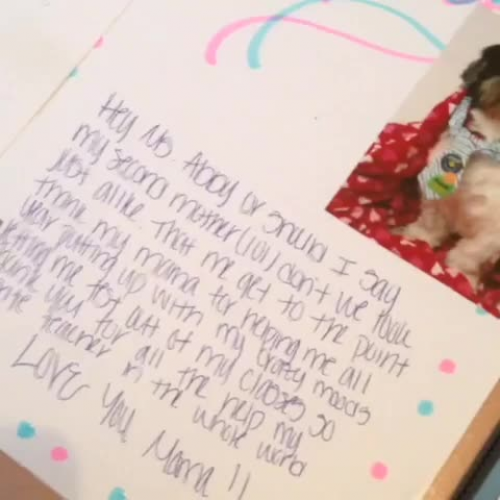 Hey Ms. Abby or should I say
my second mother (lol) don't we look
just alike That me get to the point
thank my mama for helping me all
year putting up with my crazy moods
letting me test out of my classes so
thank you for all the help my
teacher in the whole world
Love You Mama !!